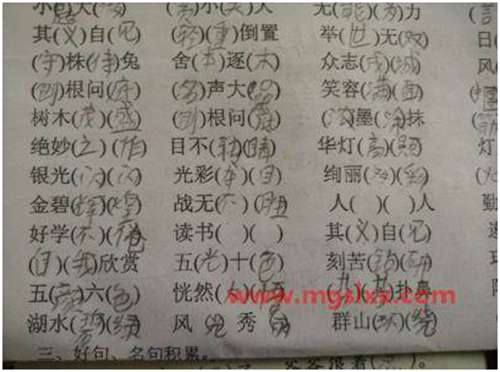 小 大( ) 小( )人 无(能)(为)力
其(义)自(见) (轻)(重)倒置 举(世)无(双) 日(
(守)株(待)兔 舍(本)逐(末) 众志(成)(城) 风
(刨)根问(底) (名)声大(噪) 笑容(满)(面)
树木(茂)(盛) (刨)根问(底) (浓)墨(涂)抹
绝妙(之)(作) 目不(转)(睛) 华灯(高)(照) 灯
银光(闪)(闪) 光彩(夺)(目) 绚丽(多)(彩)
金碧(辉)(煌) 战无(不)(胜) 人( )( )人 勤
好学(不)(倦) 读书( )( ) 其(义)自(见)
(自)(我)欣赏 五(光)十(色) 刻苦(钻)(研)
五(颜)六(色) 恍然 ( )( )扑鼻
湖水(碧)(绿) 风 秀 群山(环)(绕)
三、好句、名句积累。